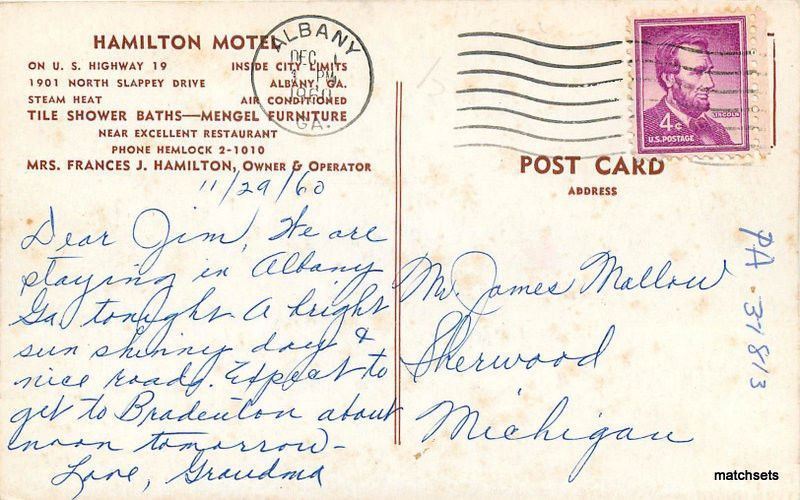 HAMILTON MOTEL
ON U. S. HIGHWAY 19 INSIDE CITY LIMITS
1901 NORTH SLAPPEY DRIVE ALBANY, GA.
STEAM HEAT AIR CONDITIONED
TILE SHOWER BATHS—MENGEL FURNITURE
NEAR EXCELLENT RESTAURANT
PHONE HEMLOCK 2-1010
MRS. FRANCES J. HAMILTON, OWNER & OPERATOR
11/29/60
Dear Jim, We are
staying in Albany
Ga tonight A bright
sun shinny day &
nice roads. Expect to
get to Bradenton about
noon tomorrow—
Love, Grandma
ALBANY
DEC
1 PM
1960
GA.
LINCOLN
4¢
U.S. POSTAGE
POST CARD
ADDRESS
Mr. James Mallow
Sherwood
Michigan
PA-37813
matchsets